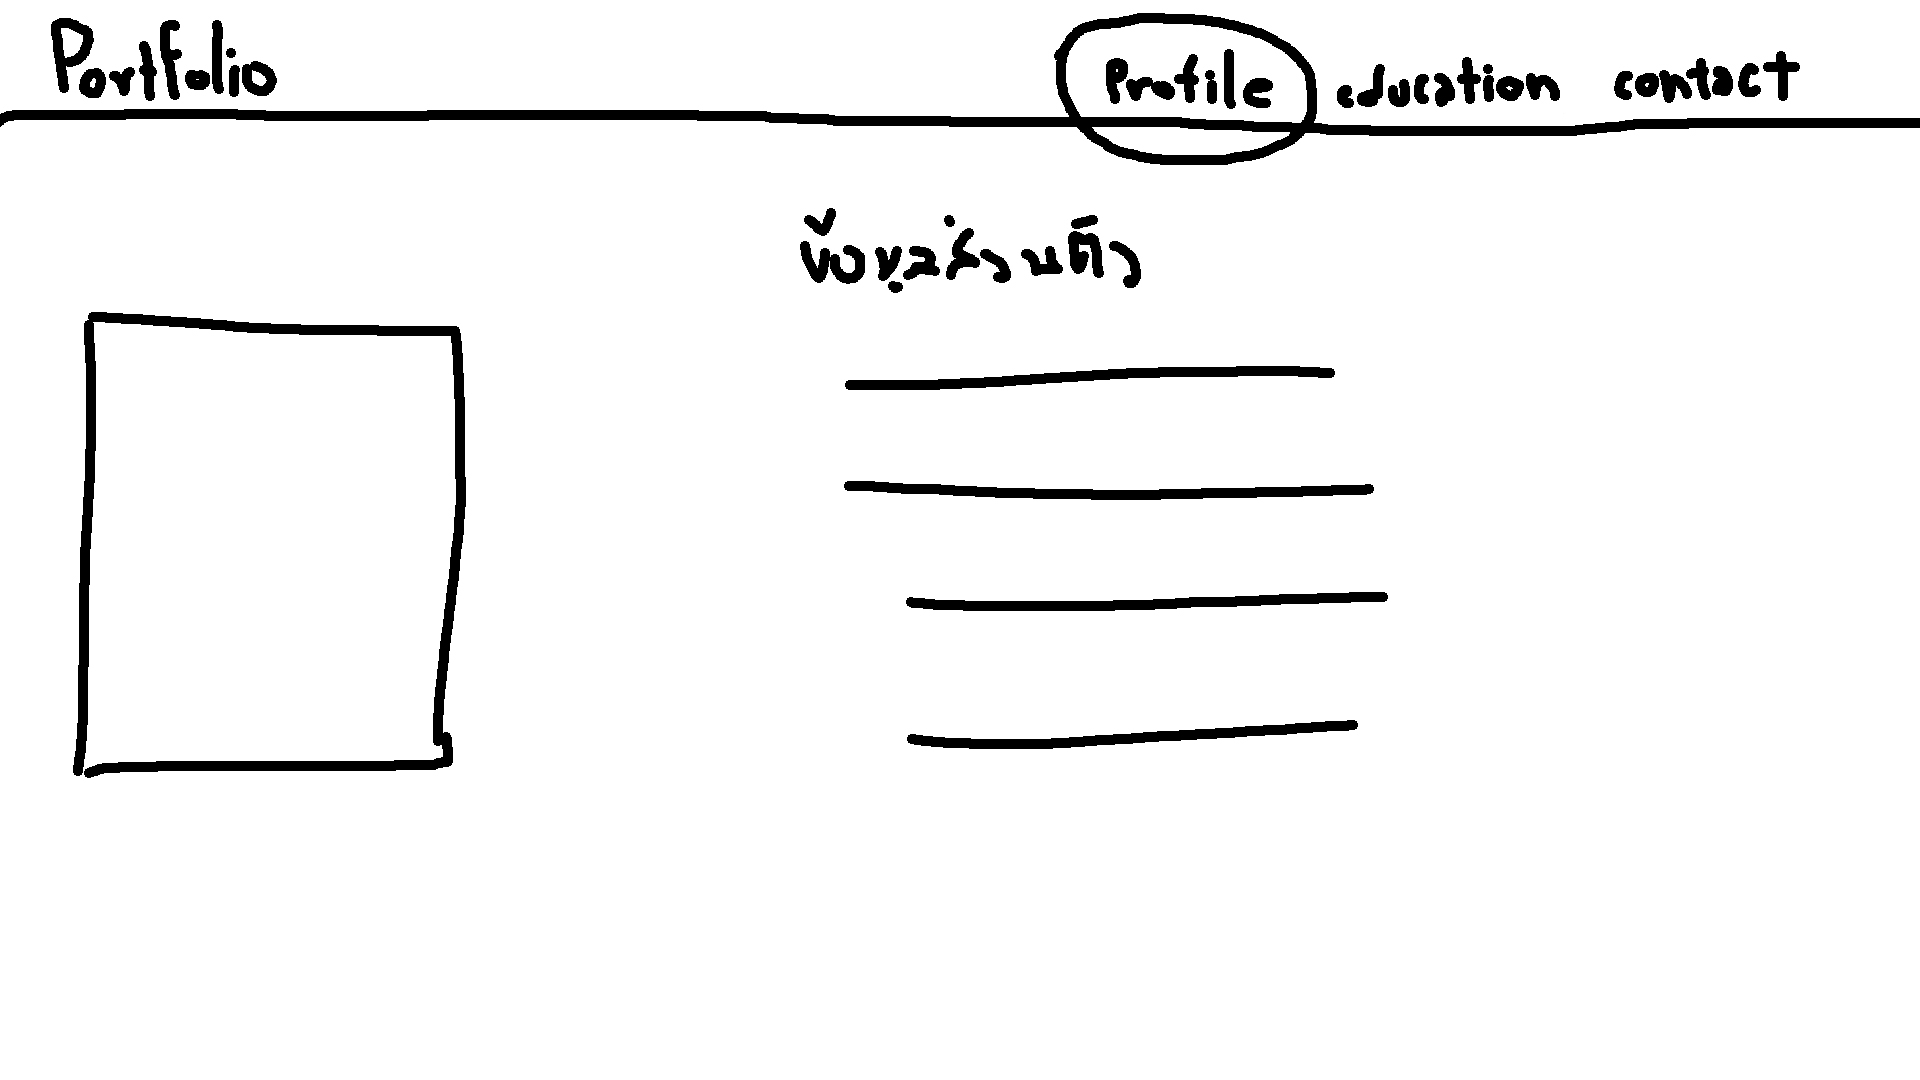 Portfolio
Profile education contact
ข้อมูลส่วนตัว